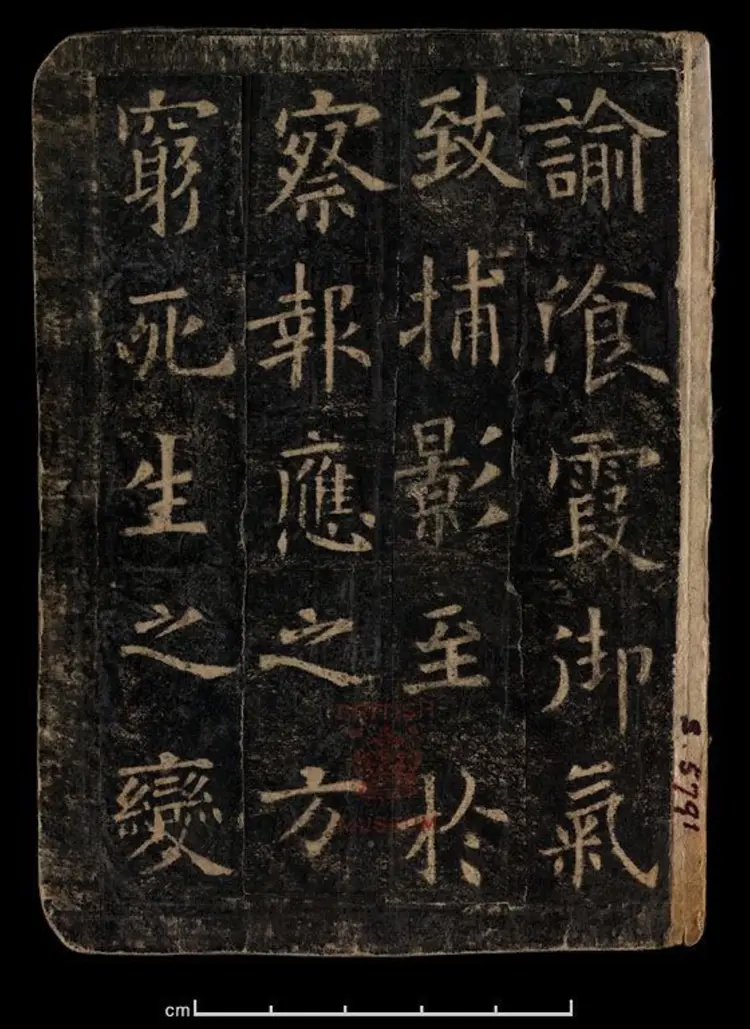 諭飡霞御氣
致捕影至於
察報應之方
窮死生之變
BRITISH MUSEUM
S.5791
cm